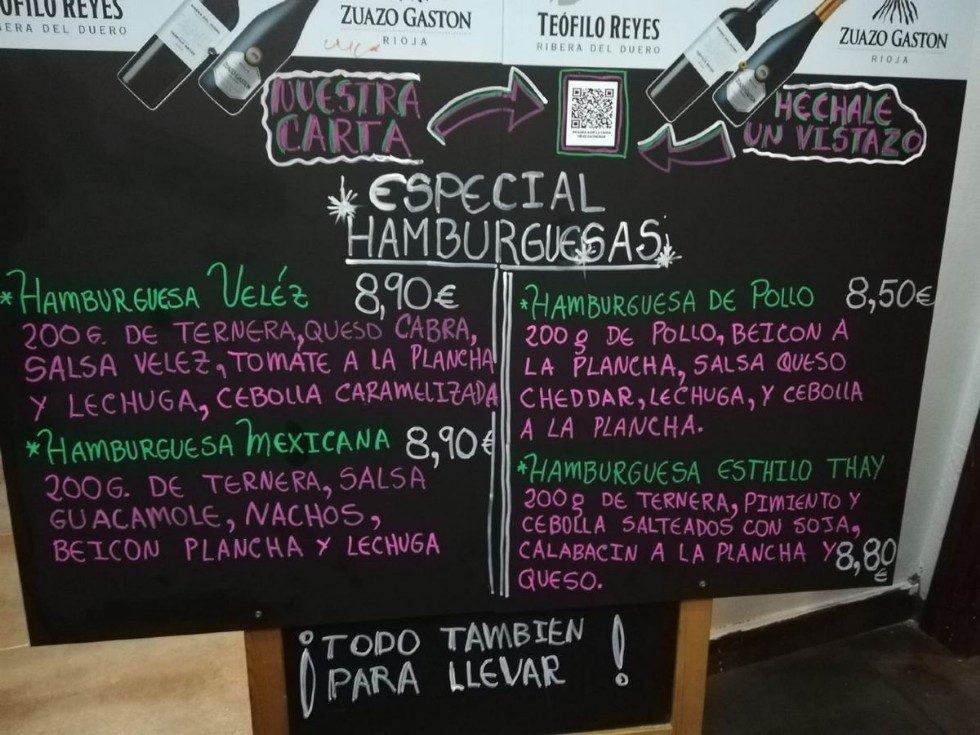 TEÓFILO REYES
RIBERA DEL DUERO
ZUAZO GASTON
RIOJA
TEÓFILO REYES
RIBERA DEL DUERO
ZUAZO GASTON
RIOJA
NUESTRA
CARTA
HECHALE
UN VISTAZO
ESPECIAL
HAMBURGUESAS
*HAMBURGUESA VELÉZ 8,90€
200G. DE TERNERA, QUESO CABRA,
SALSA VELEZ, TOMATE A LA PLANCHA
Y LECHUGA, CEBOLLA CARAMELIZADA
*HAMBURGUESA MEXICANA 8,90€
200G. DE TERNERA, SALSA
GUACAMOLE, NACHOS,
BEICON PLANCHA Y LECHUGA
*HAMBURGUESA DE POLLO 8,50€
200g DE POLLO, BEICON A
LA PLANCHA, SALSA QUESO
CHEDDAR, LECHUGA, Y CEBOLLA
A LA PLANCHA.
*HAMBURGUESA ESTHILO THAY
200g DE TERNERA, PIMIENTO Y
CEBOLLA SALTEADOS CON SOJA,
CALABACIN A LA PLANCHA Y 8,80
QUESO. €
¡TODO TAMBIEN
PARA LLEVAR!